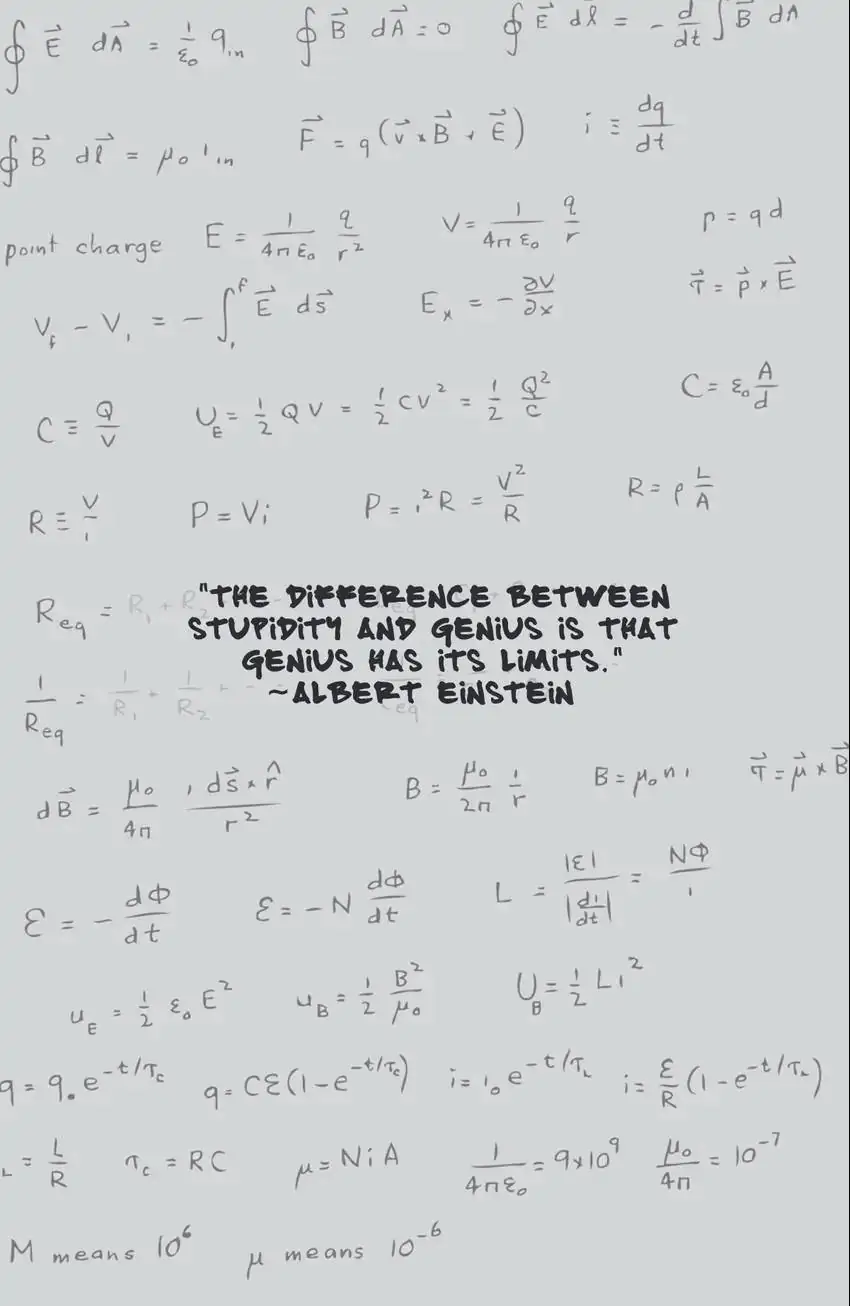 ∮ E⃗ dA⃗ = 1/ε₀ qᵢₙ ∮ B⃗ dA⃗ = 0 ∮ E⃗ dl⃗ = - d/dt ∫ B⃗ dA
∮ B⃗ dl⃗ = μ₀ iᵢₙ F⃗ = q(v⃗ × B⃗ + E⃗) i ≡ dq/dt
point charge E = 1/4πε₀ q/r² V = 1/4πε₀ q/r p = qd
V_f - V_i = - ∫ᵢᶠ E⃗ ds⃗ Eₓ = - ∂V/∂x τ⃗ = p⃗ × E⃗
C ≡ Q/V U_E = 1/2 QV = 1/2 CV² = 1/2 Q²/C C = ε₀ A/d
R ≡ V/i P = Vi P = i²R = V²/R R = ρ L/A
R_eq = R₁ + R₂
"THE DIFFERENCE BETWEEN
STUPIDITY AND GENIUS IS THAT
GENIUS HAS ITS LIMITS."
~ALBERT EINSTEIN
1/R_eq = 1/R₁ + 1/R₂ +
dB⃗ = μ₀/4π i ds⃗ × r̂/r² B = μ₀/2π i/r B = μ₀ n i τ⃗ = μ⃗ × B⃗
ℰ = - dΦ/dt ℰ = -N dΦ/dt L = |ℰ|/|di/dt| = NΦ/i
u_E = 1/2 ε₀ E² u_B = 1/2 B²/μ₀ U_B = 1/2 Li²
q = q₀ e^(-t/τ_C) q = Cℰ(1 - e^(-t/τ_C)) i = i₀ e^(-t/τ_L) i = ℰ/R (1 - e^(-t/τ_L))
L = L/R τ_C = RC μ = NiA 1/4πε₀ = 9×10⁹ μ₀/4π = 10⁻⁷
M means 10⁶ μ means 10⁻⁶